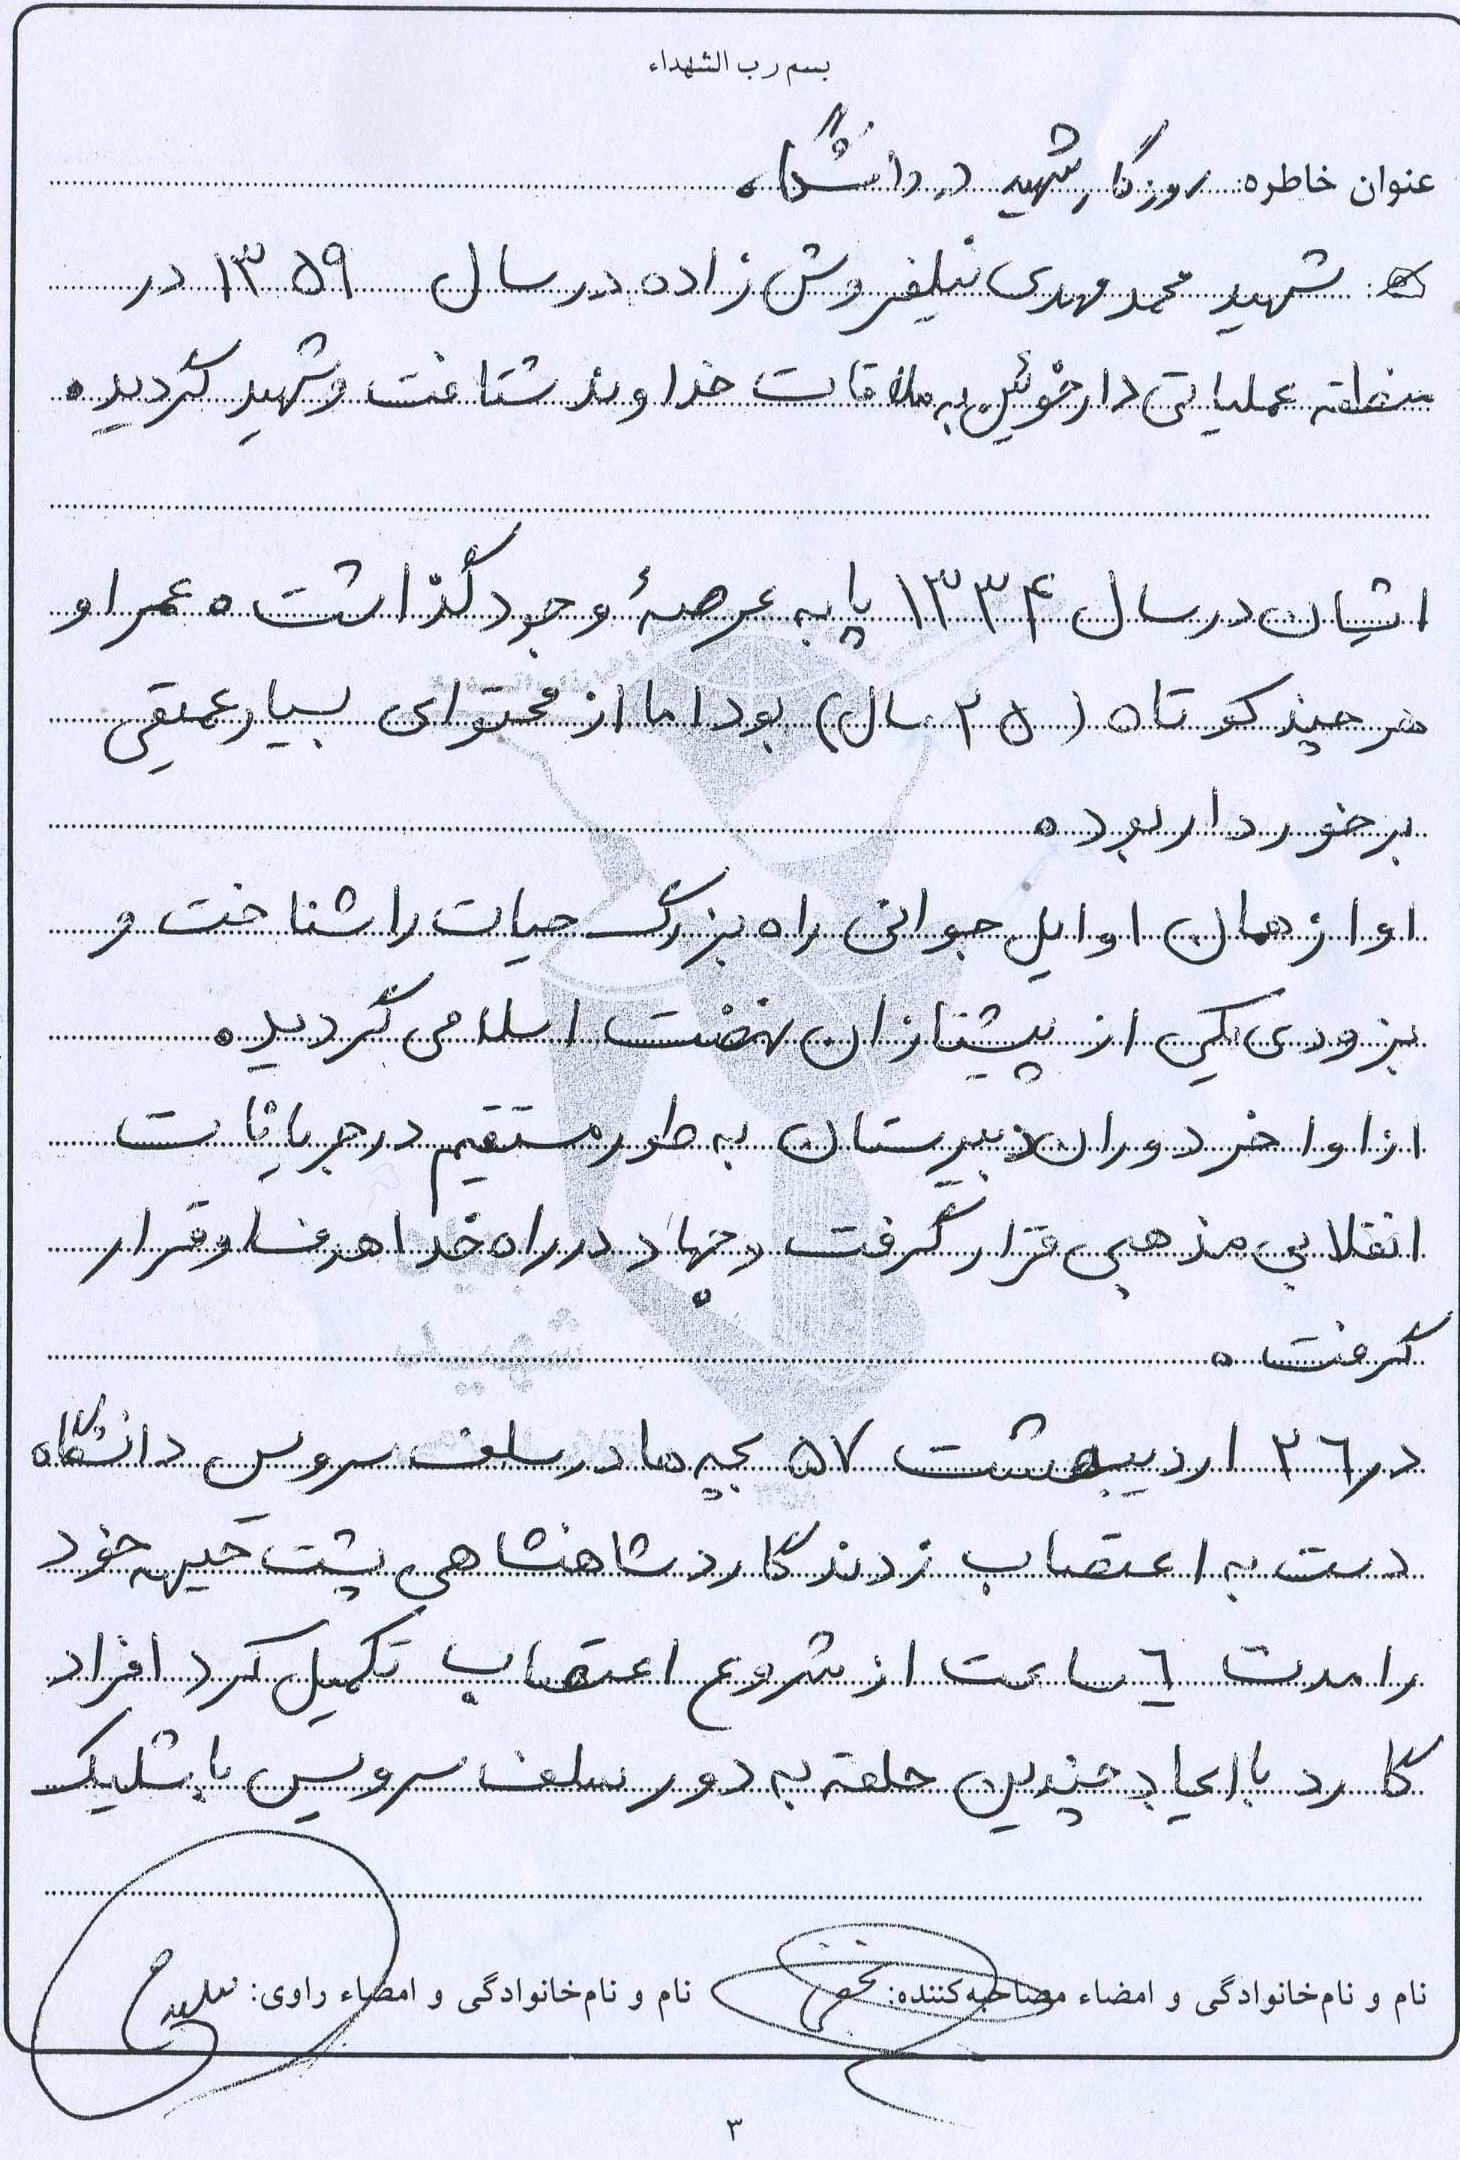 بسم رب الشهداء
عنوان خاطره: روزگار شهید در دانشگاه
شهید محمد مهدی نیلفروش زاده در سال ۱۳۵۹ در
منطقه عملیاتی دارخوئین به ملاقات خداوند شتافت و شهید گردید.
ایشان در سال ۱۳۳۴ پا به عرصهٔ وجود گذاشت. عمر او
هر چند کوتاه (۲۵ سال) بود اما از محتوای بسیار عمیقی
برخوردار بود.
او از همان اوایل جوانی راه بزرگ حیات را شناخت و
بزودی یکی از پیشتازان نهضت اسلامی گردید.
از اواخر دوران دبیرستان به طور مستقیم در جریانات
انقلابی مذهبی قرار گرفت و جهاد در راه خدا هدف او قرار
گرفت.
در ۲۶ اردیبهشت ۵۷ بچه ها در سلف سرویس دانشگاه
دست به اعتصاب زدند گارد شاهنشاهی پشت جبهه خود
را مدت ۶ ساعت از شروع اعتصاب تکمیل کرد افراد
گارد با ایجاد چندین حلقه به دور سلف سرویس با شلیک
نام و نام‌خانوادگی و امضاء مصاحبه‌کننده: نام و نام‌خانوادگی و امضاء راوی:
۳